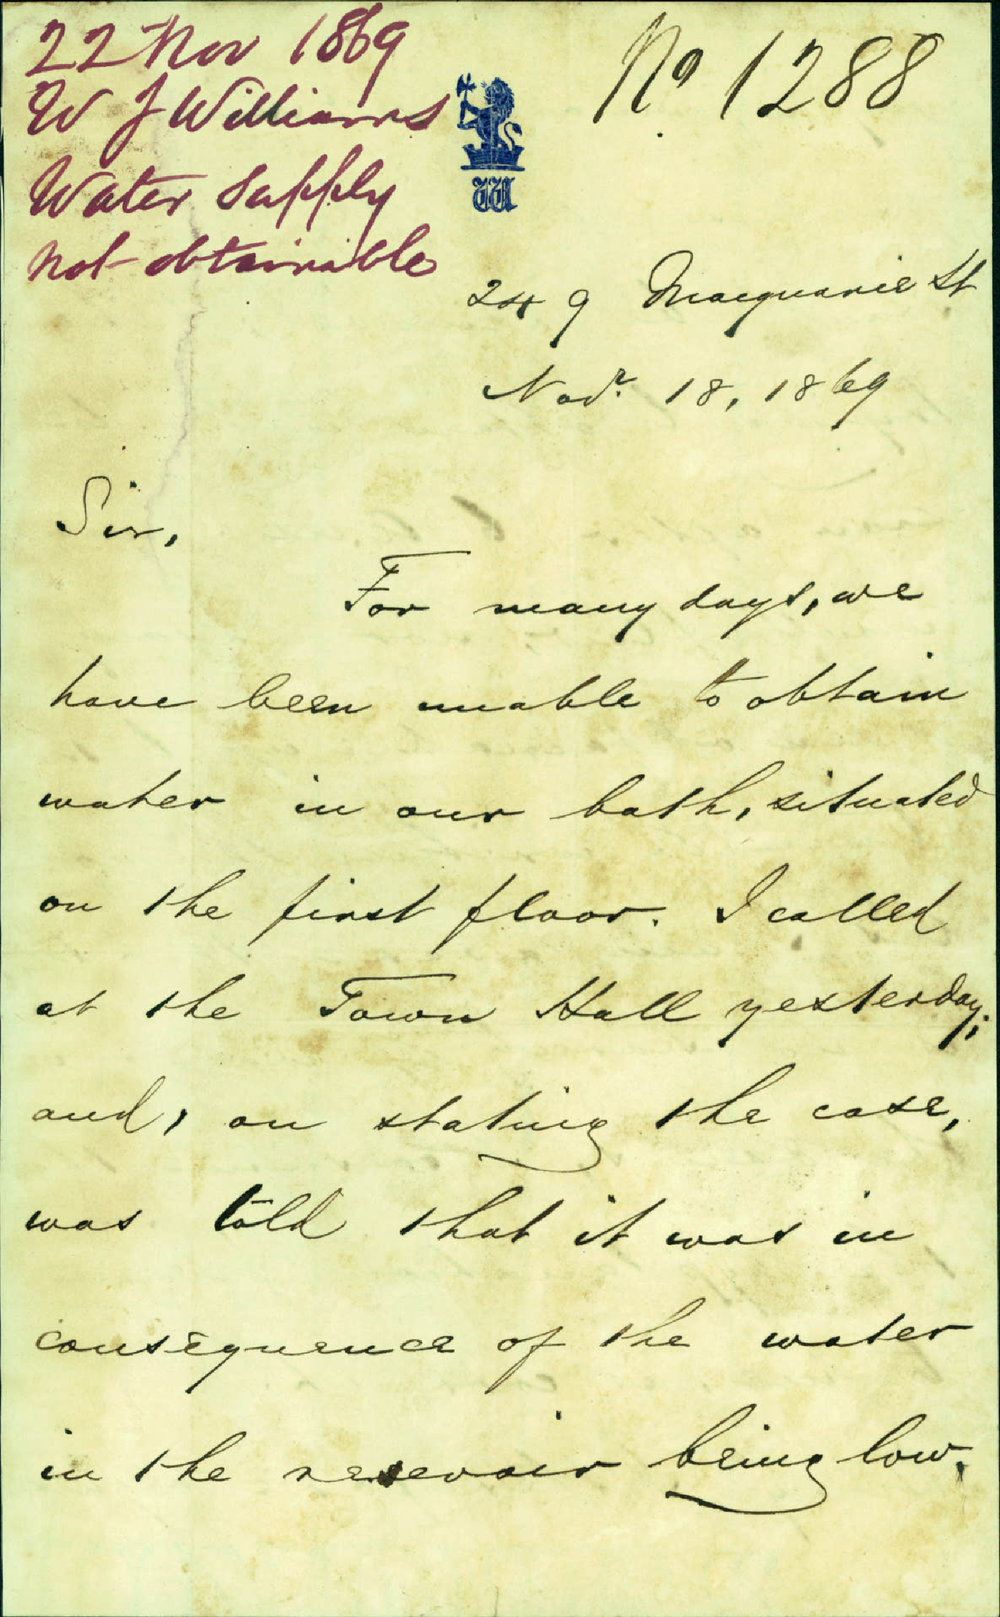 22 Nov 1869
W J Williams
Water supply
not obtainable
No 1288
W
249 Macquarie St
Novr. 18, 1869
Sir,
For many days, we
have been unable to obtain
water in our bath, situated
on the first floor. I called
at the Town Hall yesterday;
and, on stating the case,
was told that it was in
consequence of the water
in the resevoir being low.